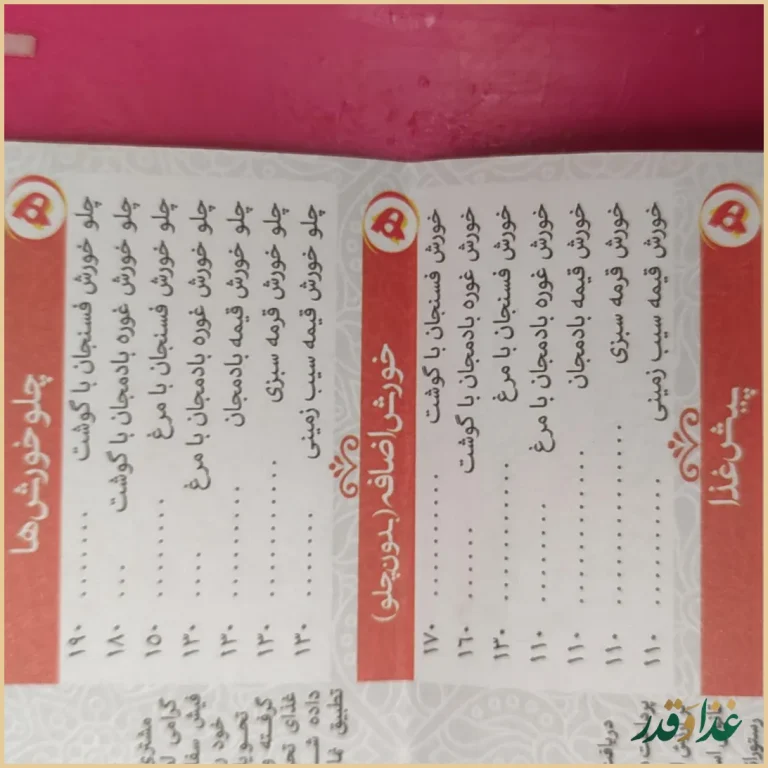 چلو خورش ها
چلو خورش فسنجان با گوشت ........ ۱۹۰
چلو خورش غوره بادمجان با گوشت ... ۱۸۰
چلو خورش فسنجان با مرغ .......... ۱۵۰
چلو خورش غوره بادمجان با مرغ .... ۱۳۰
چلو خورش قیمه بادمجان .......... ۱۳۰
چلو خورش قرمه سبزی ............ ۱۳۰
چلو خورش قیمه سیب زمینی ........ ۱۳۰
خورش اضافه (بدون چلو)
خورش فسنجان با گوشت .......... ۱۷۰
خورش غوره بادمجان با گوشت ...... ۱۶۰
خورش فسنجان با مرغ ............ ۱۳۰
خورش غوره بادمجان با مرغ ........ ۱۱۰
خورش قیمه بادمجان ............ ۱۱۰
خورش قرمه سبزی .............. ۱۱۰
خورش قیمه سیب زمینی .......... ۱۱۰
پیش غذا
مشتری
گرامی
فیش
خود
تحویل
گرفته
غذای
داده
تطبیق
غذا و قدر